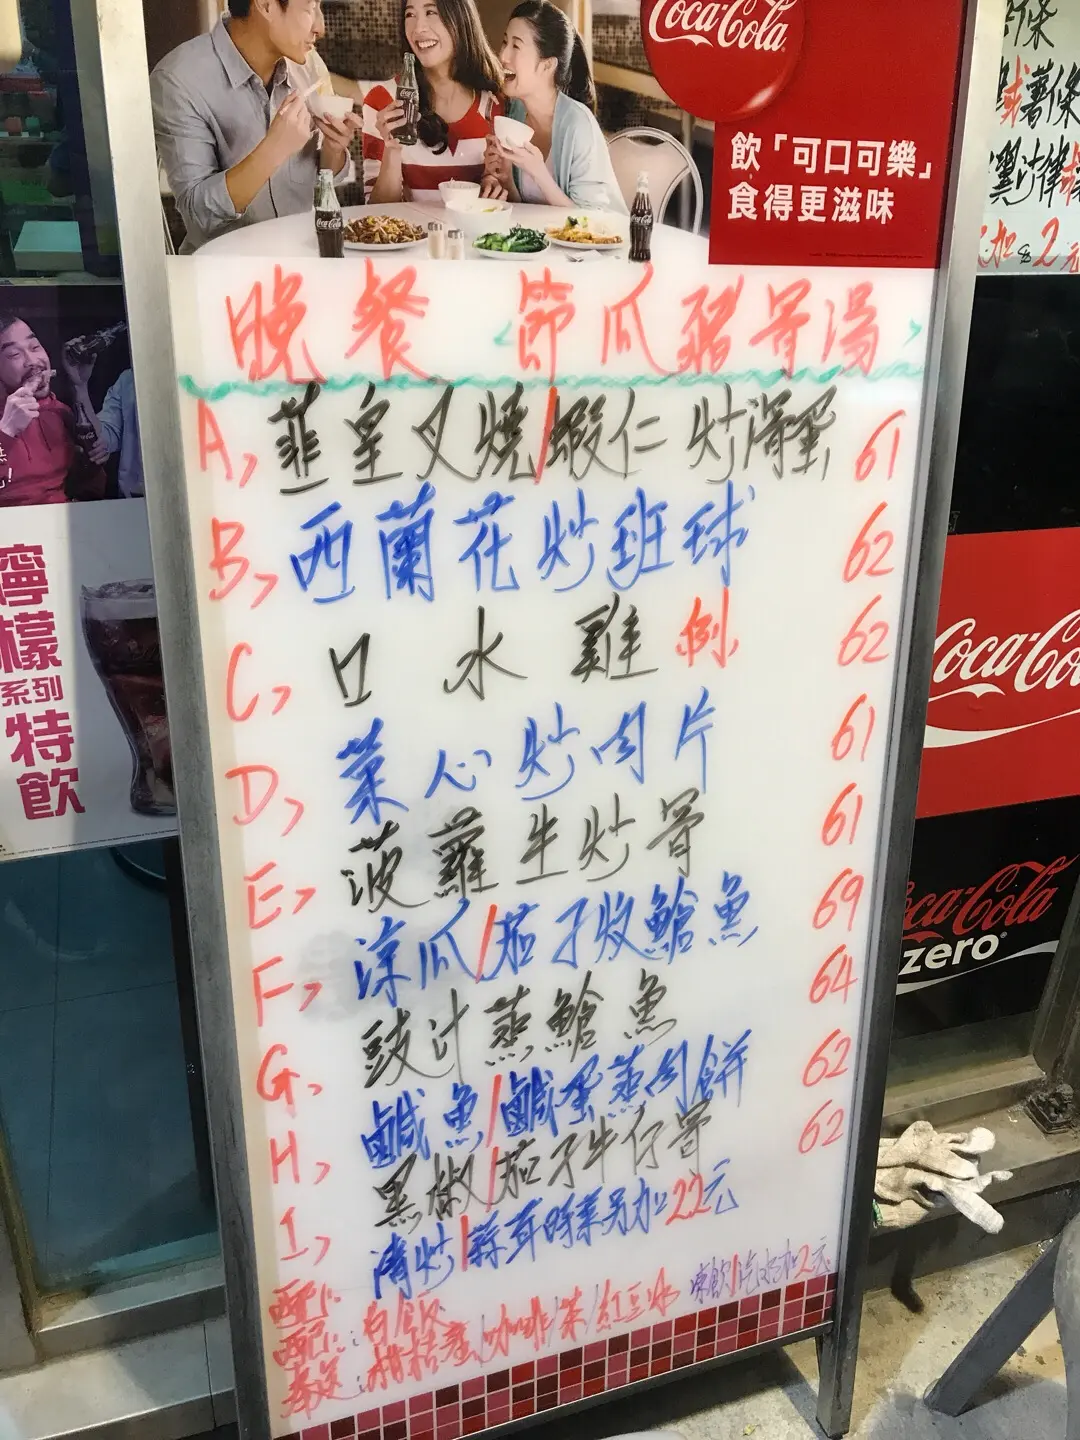 Coca-Cola
飲「可口可樂」
食得更滋味
晚餐 <節瓜豬骨湯>
A, 韮皇叉燒/蝦仁炒滑蛋 61
B, 西蘭花炒班球 62
C, 口水雞例 62
D, 菜心炒肉片 61
E, 菠蘿生炒骨 61
F, 涼瓜/茄子炆鱠魚 69
G, 豉汁蒸鱠魚 64
H, 鹹魚/鹹蛋蒸肉餅 62
I, 黑椒/茄子牛仔骨 62
清炒/蒜茸時菜另加22元
配: 白飯
配:
奉送: 柑桔蜜/咖啡/茶/紅豆冰
凍飲/汽水加2元
檸檬
系列
特飲
薯條
沙律
加$2元
Coca-Co
Coca-Cola
zero